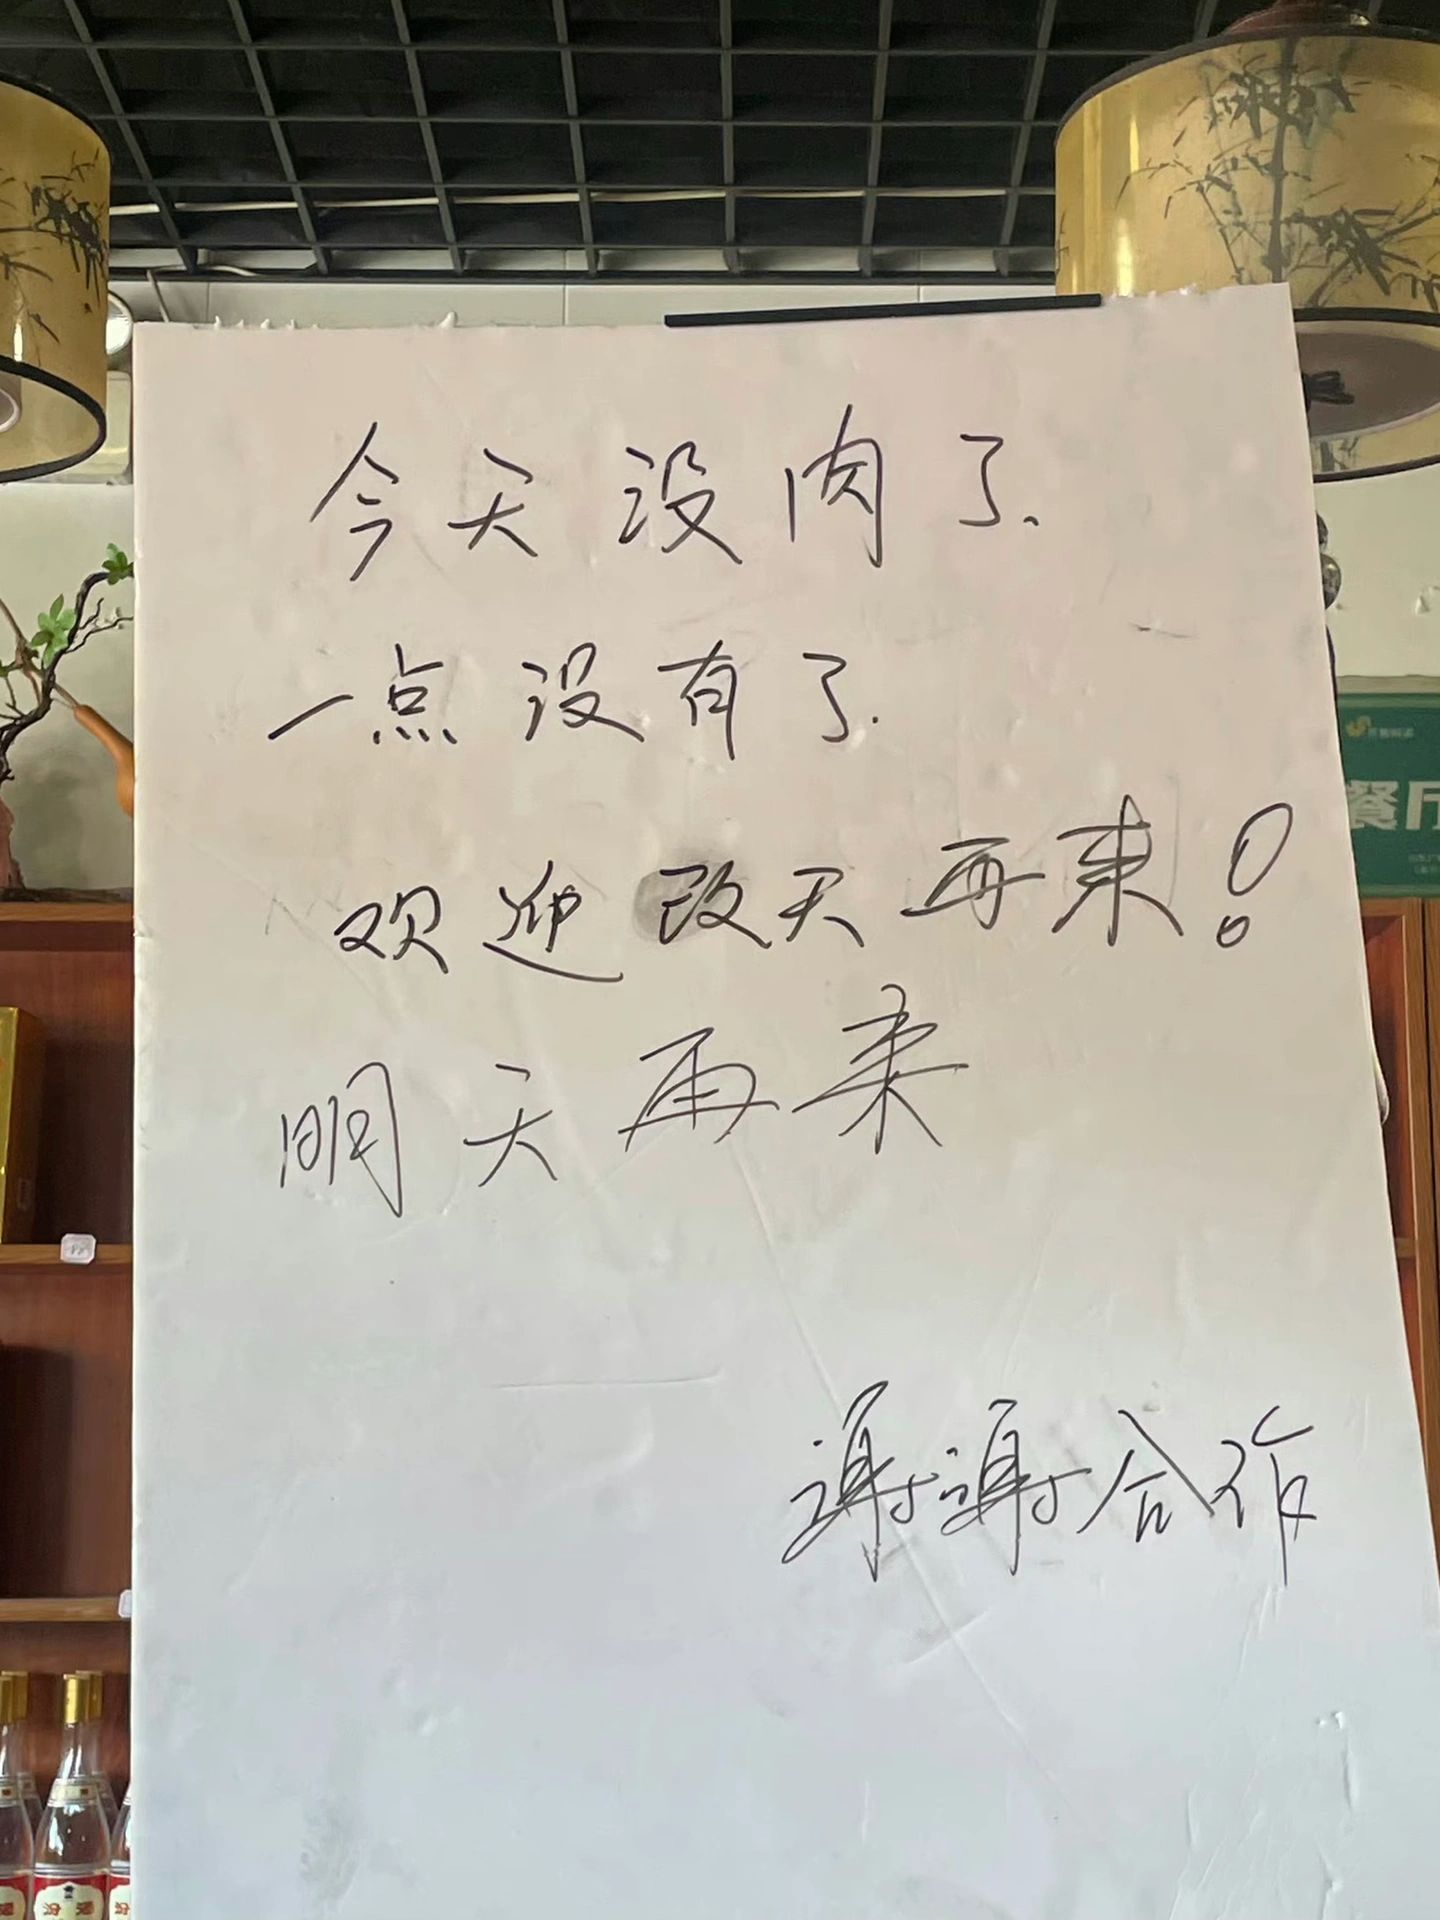 今天没肉了.
一点没有了.
欢迎改天再来!
明天再来
谢谢合作
餐厅